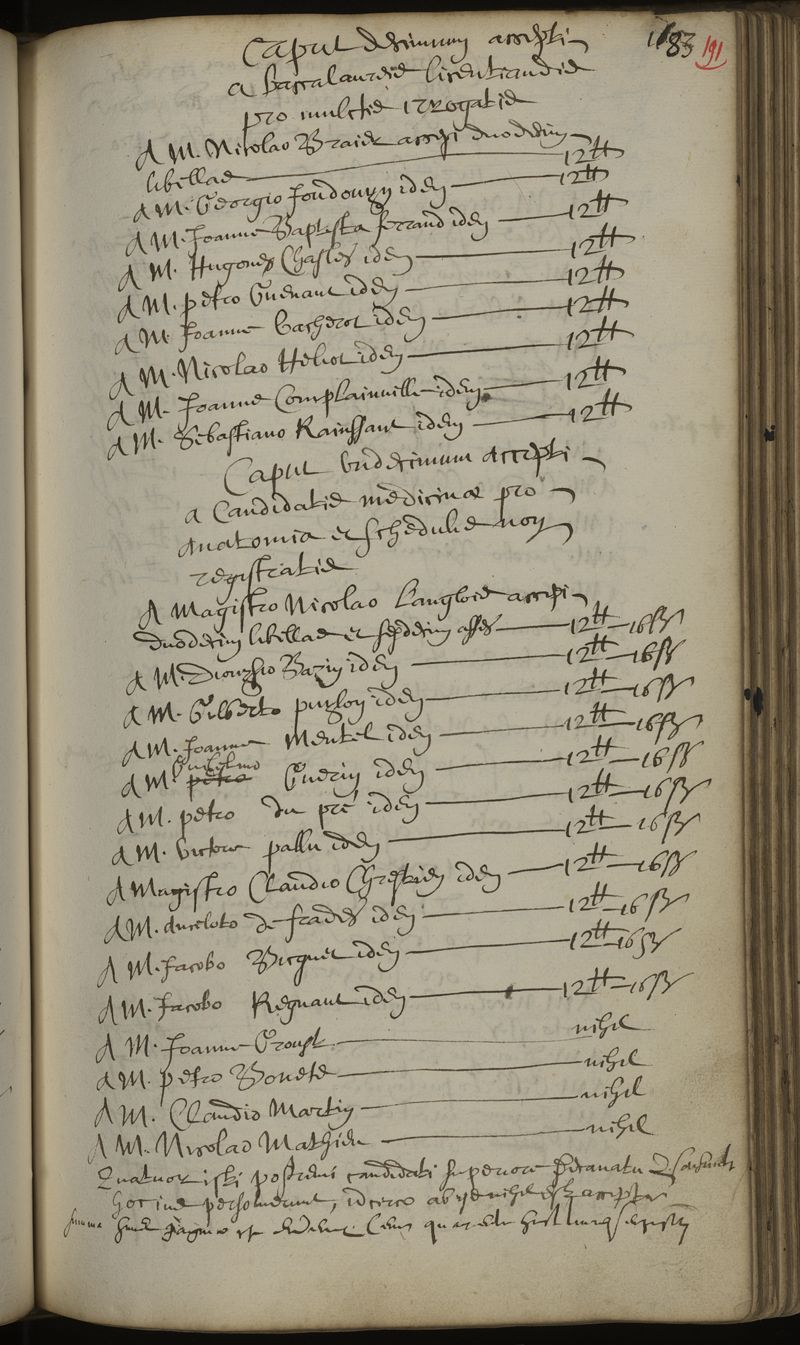 183 191
Caput decimum accepti
a baccalaureis licentiandis
pro mulctis irrogatis
A M. Nicolao Braier accepi duodecim
libellas 12tt
A M. Georgio Joudouyn idem 12tt
A M. Joanne Baptista Ferrand idem 12tt
A M. Hugone Chasles idem 12tt
A M. petro Guenaut idem 12tt
A M. Joanne bacherot idem 12tt
A M. Nicolao Heliot idem 12tt
A M. Joanne Complainville idem 12tt
A M. Sebastiano Rainssant idem 12tt
Caput undecimum accepti
a Candidatis medicinae pro
anatomia et schedulis non
registratis
A Magistro Nicolao Langlois accepi
duodecim libellas et sexdecim asses 12tt 16ss
A M. Dionysio Bazin idem 12tt 16ss
A M. Gilberto puylon idem 12tt 16ss
A M. Joanne Mentel idem 12tt 16ss
A M. petro Guilielmo Guerin idem 12tt 16ss
A M. petro du pré idem 12tt 16ss
A M. Victore pallu idem 12tt 16ss
A Magistro Claudio Chrestien idem 12tt 16ss
A M. anceloto de frades idem 12tt 16ss
A M. Jacobo Bicquet idem 12tt 16ss
A M. Jacobo Regnaut idem 12tt 16ss
A M. Joanne nihil
A M. petro Bonete nihil
A M. Claudio Martin nihil
A M. Nicolao Mathieu nihil
Quatuor isti postremi candidati superiore decanatu
hoc ius persolverunt, idcirco ab iis nihil est acceptum
summa